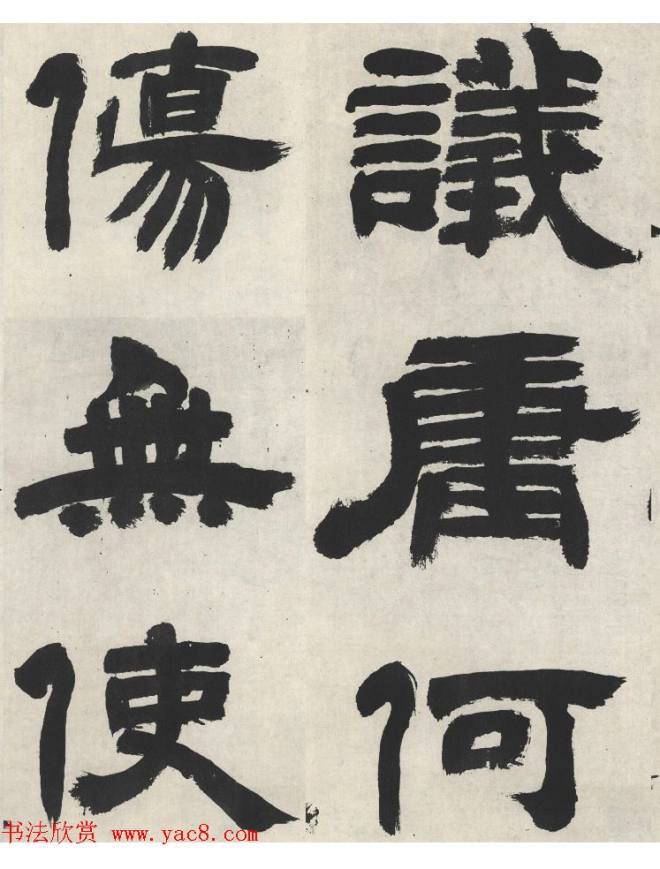 譏庸何
傷無使
书法欣赏 www.yac8.com